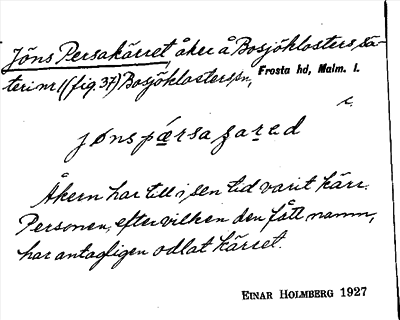 Jöns Persakärret, åker å Bosjöklosters sä-
teri nr 1 (fig. 37) Bosjöklosters sn, Frosta hd, Malm. l.
jønspærsa
Åkern har till i sen tid varit kärr.
Personen, efter vilken den fått namn,
har antagligen odlat kärret.
EINAR HOLMBERG 1927